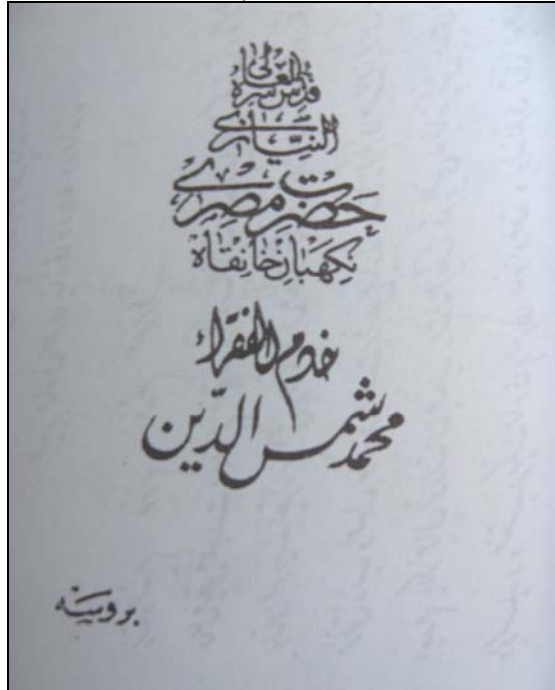 قدس سره العالی
النیازی
حضرت مصری
نکهبان خانقاه
خادم الفقراء
محمد شمس الدین
بروسه